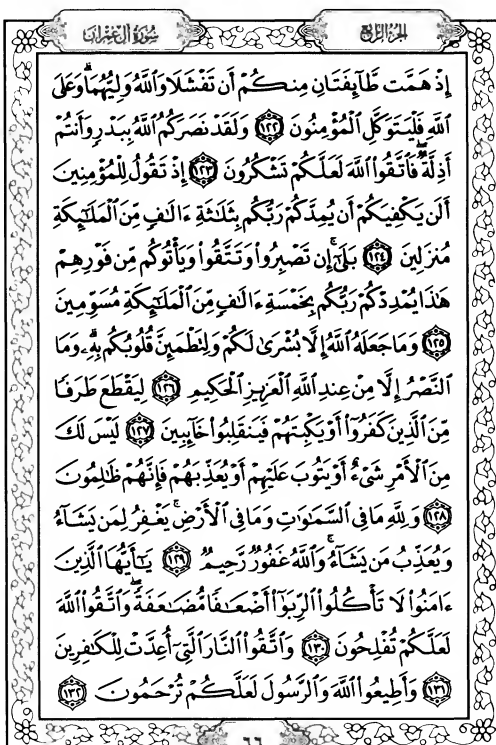 سُورَةُ آلِ عِمْرَان
الجُزْءُ الرَّابِع
إِذْ هَمَّت طَّآئِفَتَانِ مِنكُمْ أَن تَفْشَلَا وَٱللَّهُ وَلِيُّهُمَا ۗ وَعَلَى
ٱللَّهِ فَلْيَتَوَكَّلِ ٱلْمُؤْمِنُونَ ١٢٢ وَلَقَدْ نَصَرَكُمُ ٱللَّهُ بِبَدْرٍ وَأَنتُمْ
أَذِلَّةٌ ۖ فَٱتَّقُوا۟ ٱللَّهَ لَعَلَّكُمْ تَشْكُرُونَ ١٢٣ إِذْ تَقُولُ لِلْمُؤْمِنِينَ
أَلَن يَكْفِيَكُمْ أَن يُمِدَّكُمْ رَبُّكُم بِثَلَٰثَةِ ءَالَٰفٍ مِّنَ ٱلْمَلَٰٓئِكَةِ
مُنزَلِينَ ١٢٤ بَلَىٰٓ ۚ إِن تَصْبِرُوا۟ وَتَتَّقُوا۟ وَيَأْتُوكُم مِّن فَوْرِهِمْ
هَٰذَا يُمْدِدْكُمْ رَبُّكُم بِخَمْسَةِ ءَالَٰفٍ مِّنَ ٱلْمَلَٰٓئِكَةِ مُسَوِّمِينَ
١٢٥ وَمَا جَعَلَهُ ٱللَّهُ إِلَّا بُشْرَىٰ لَكُمْ وَلِتَطْمَئِنَّ قُلُوبُكُم بِهِۦ ۗ وَمَا
ٱلنَّصْرُ إِلَّا مِنْ عِندِ ٱللَّهِ ٱلْعَزِيزِ ٱلْحَكِيمِ ١٢٦ لِيَقْطَعَ طَرَفًا
مِّنَ ٱلَّذِينَ كَفَرُوٓا۟ أَوْ يَكْبِتَهُمْ فَيَنقَلِبُوا۟ خَآئِبِينَ ١٢٧ لَيْسَ لَكَ
مِنَ ٱلْأَمْرِ شَىْءٌ أَوْ يَتُوبَ عَلَيْهِمْ أَوْ يُعَذِّبَهُمْ فَإِنَّهُمْ ظَٰلِمُونَ
١٢٨ وَلِلَّهِ مَا فِى ٱلسَّمَٰوَٰتِ وَمَا فِى ٱلْأَرْضِ ۚ يَغْفِرُ لِمَن يَشَآءُ
وَيُعَذِّبُ مَن يَشَآءُ ۚ وَٱللَّهُ غَفُورٌ رَّحِيمٌ ١٢٩ يَٰٓأَيُّهَا ٱلَّذِينَ
ءَامَنُوا۟ لَا تَأْكُلُوا۟ ٱلرِّبَوٰٓا۟ أَضْعَٰفًا مُّضَٰعَفَةً ۖ وَٱتَّقُوا۟ ٱللَّهَ
لَعَلَّكُمْ تُفْلِحُونَ ١٣٠ وَٱتَّقُوا۟ ٱلنَّارَ ٱلَّتِىٓ أُعِدَّتْ لِلْكَٰفِرِينَ
١٣١ وَأَطِيعُوا۟ ٱللَّهَ وَٱلرَّسُولَ لَعَلَّكُمْ تُرْحَمُونَ ١٣٢
٦٦